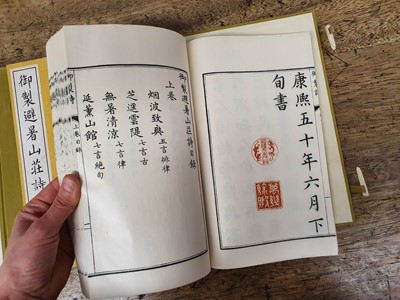 康熙五十年六月下
旬書
御製避暑山莊詩目錄
上卷
烟波致爽 五言排律
芝逕雲隄 七言古
無暑清涼 七言律
延薰山館 七言絶句
上卷目錄
御製避暑山莊詩